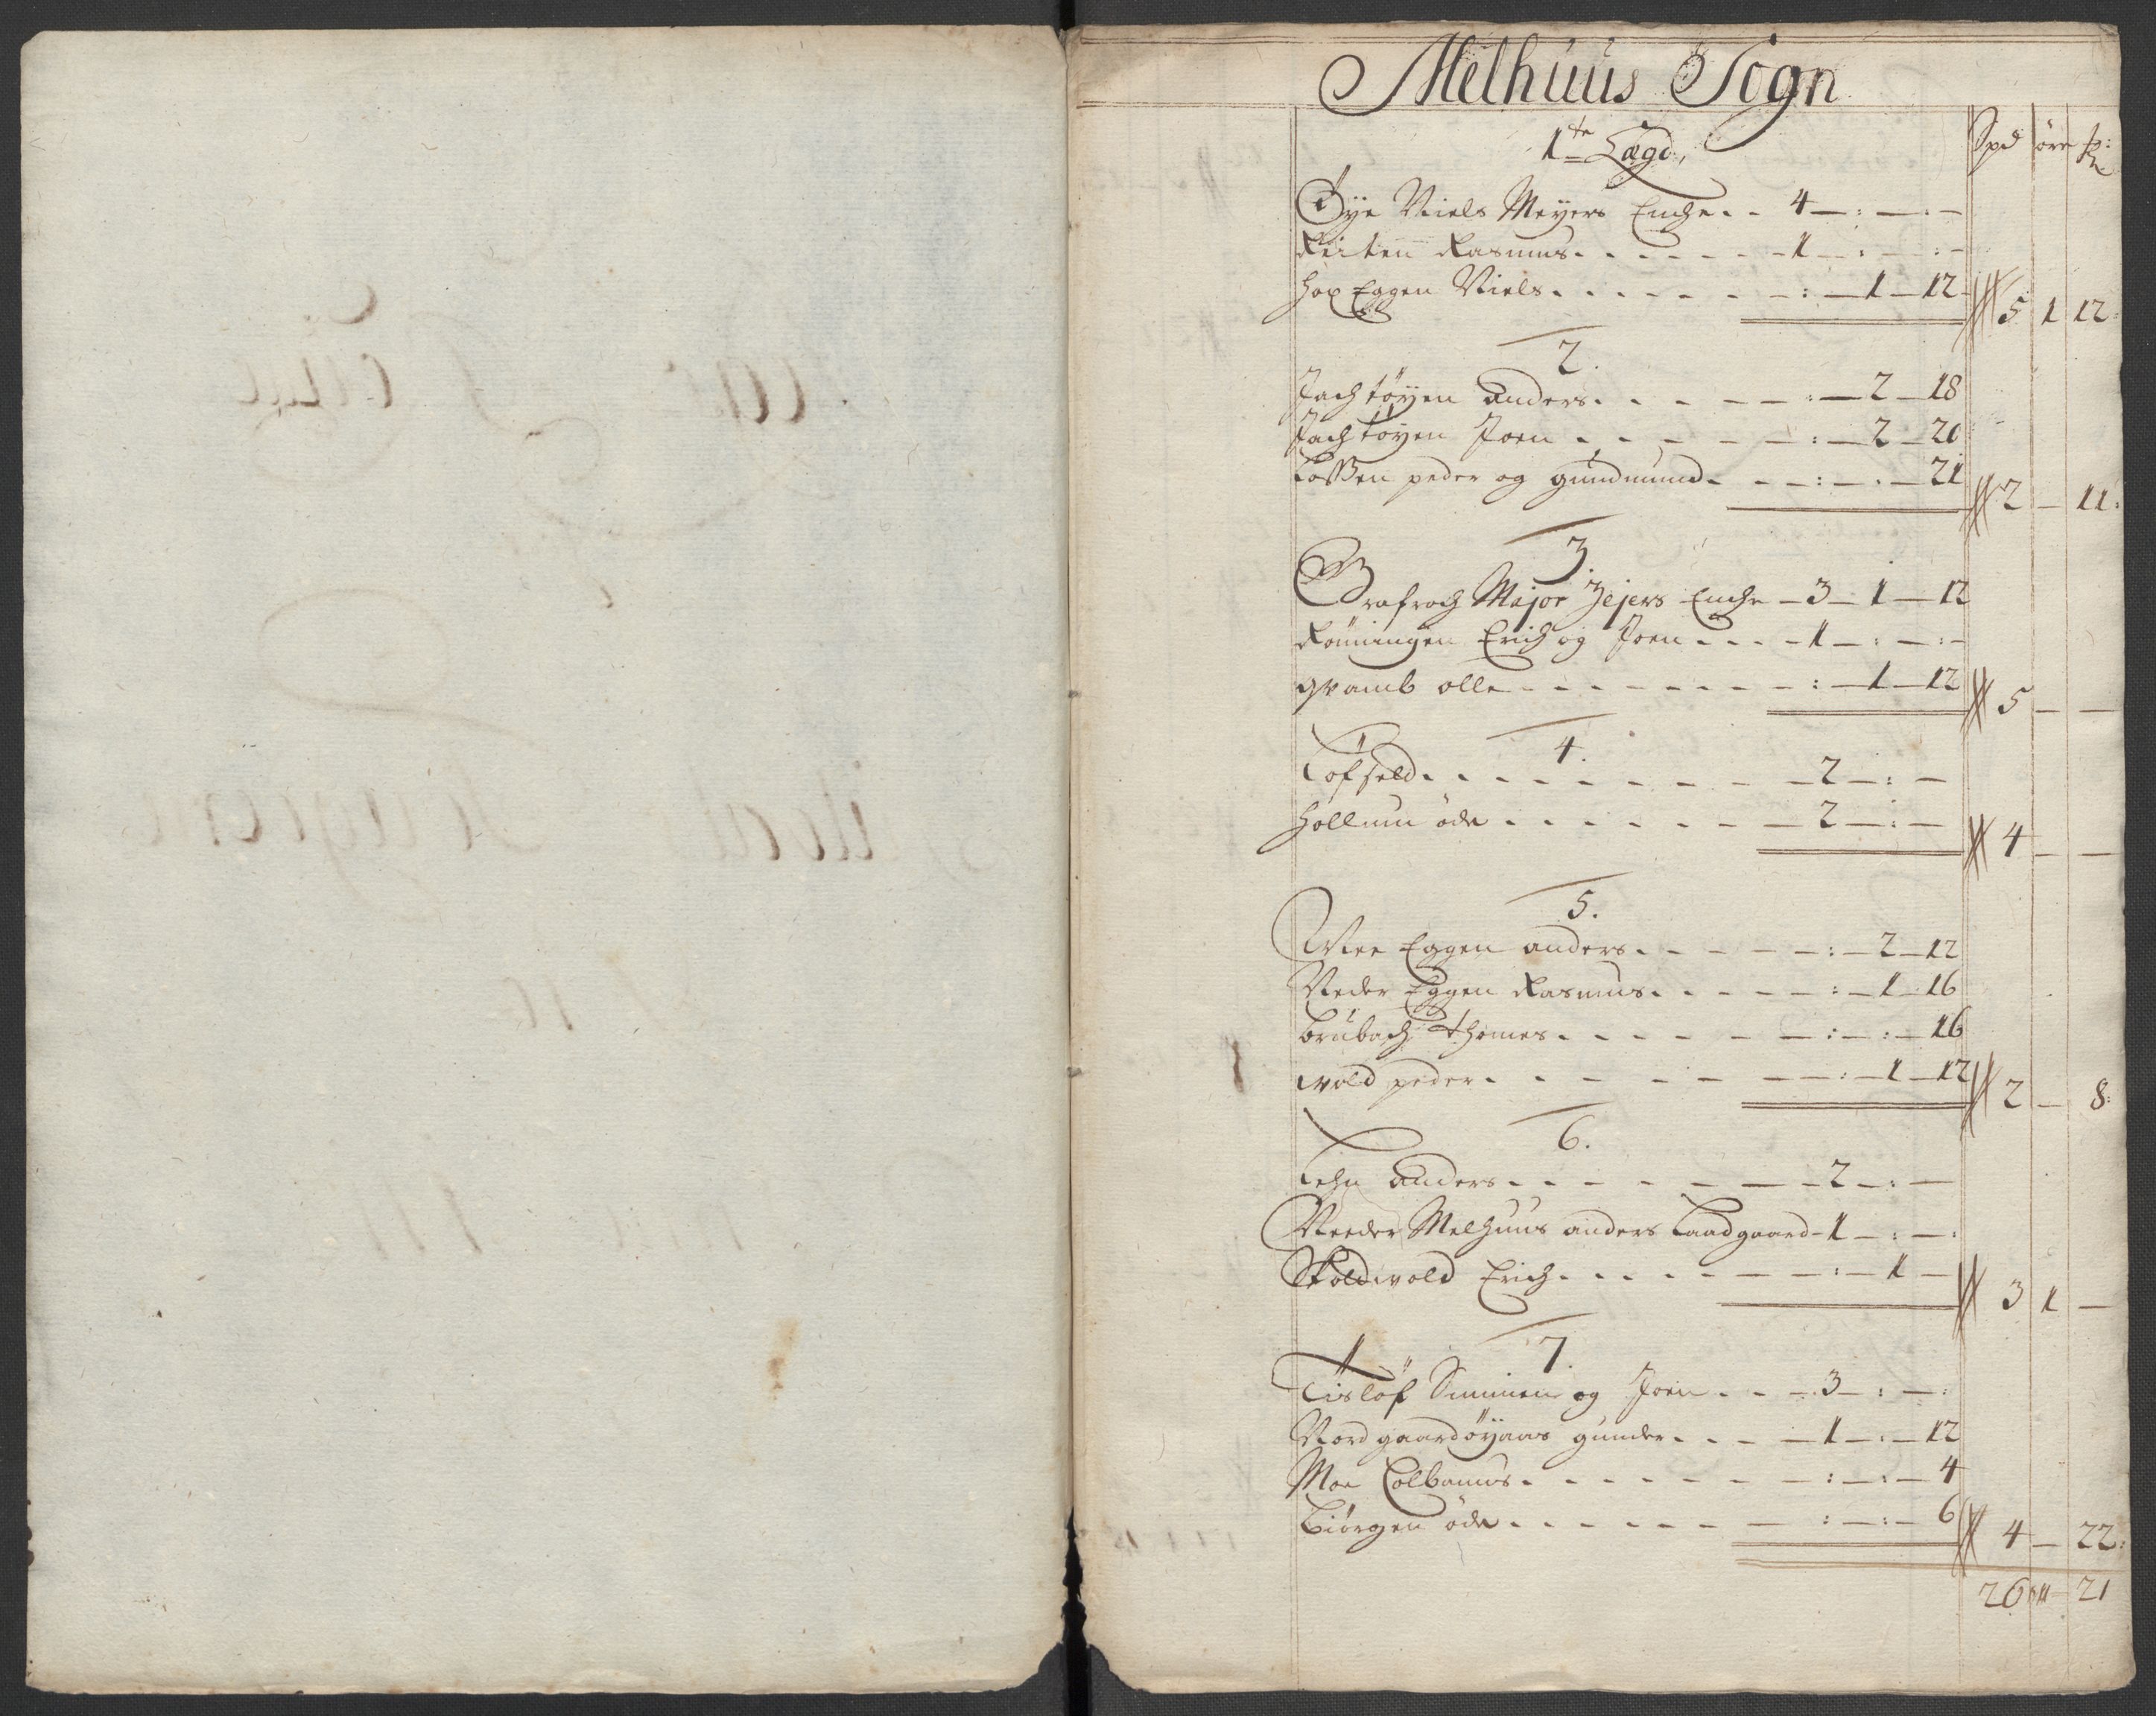 Melhuus Sogn
1te Lægd,
Spd öre
Öye Niels Meyers Enche 4 — : — : —
Reiten Rasmus 1 — : — : —
Hop Eggen Niels : — 1 — 12
5 1 12
2.
Jachtöyen Anders : — 2 — 18
Jachtöyen Joen : — 2 — 20
Loßen peder og gundmund : — . — 21
2 — 11
3.
Grafroch Major Zejers Enche — 3 — 1 — 12
Rönningen Erich og Joen 1 — : — : —
qvamb olle : — 1 — 12
5 — —
4.
Löfseld 2 — : —
Hollum öde 2 — : —
4 — —
5.
Øvre Eggen anders : — 2 — 12
Neder Eggen Rasmus : — 1 — 16
brubach Thomes : — : — 16
wold peder : — 1 — 12
2 — 8
6.
Lehn Anders 2 — : —
Needer Melhuus anders Laadgaard 1 — : — :
Skoldwold Erich : — 1 —
3 1 —
7.
Tislöf Simmen og Joen 3 — : — :
Nordgaardöyaas gunder 1 — : — 12
Moe Colbanus : — : — 4
Biörgen öde : — : — 6
4 — 22
26 " 21